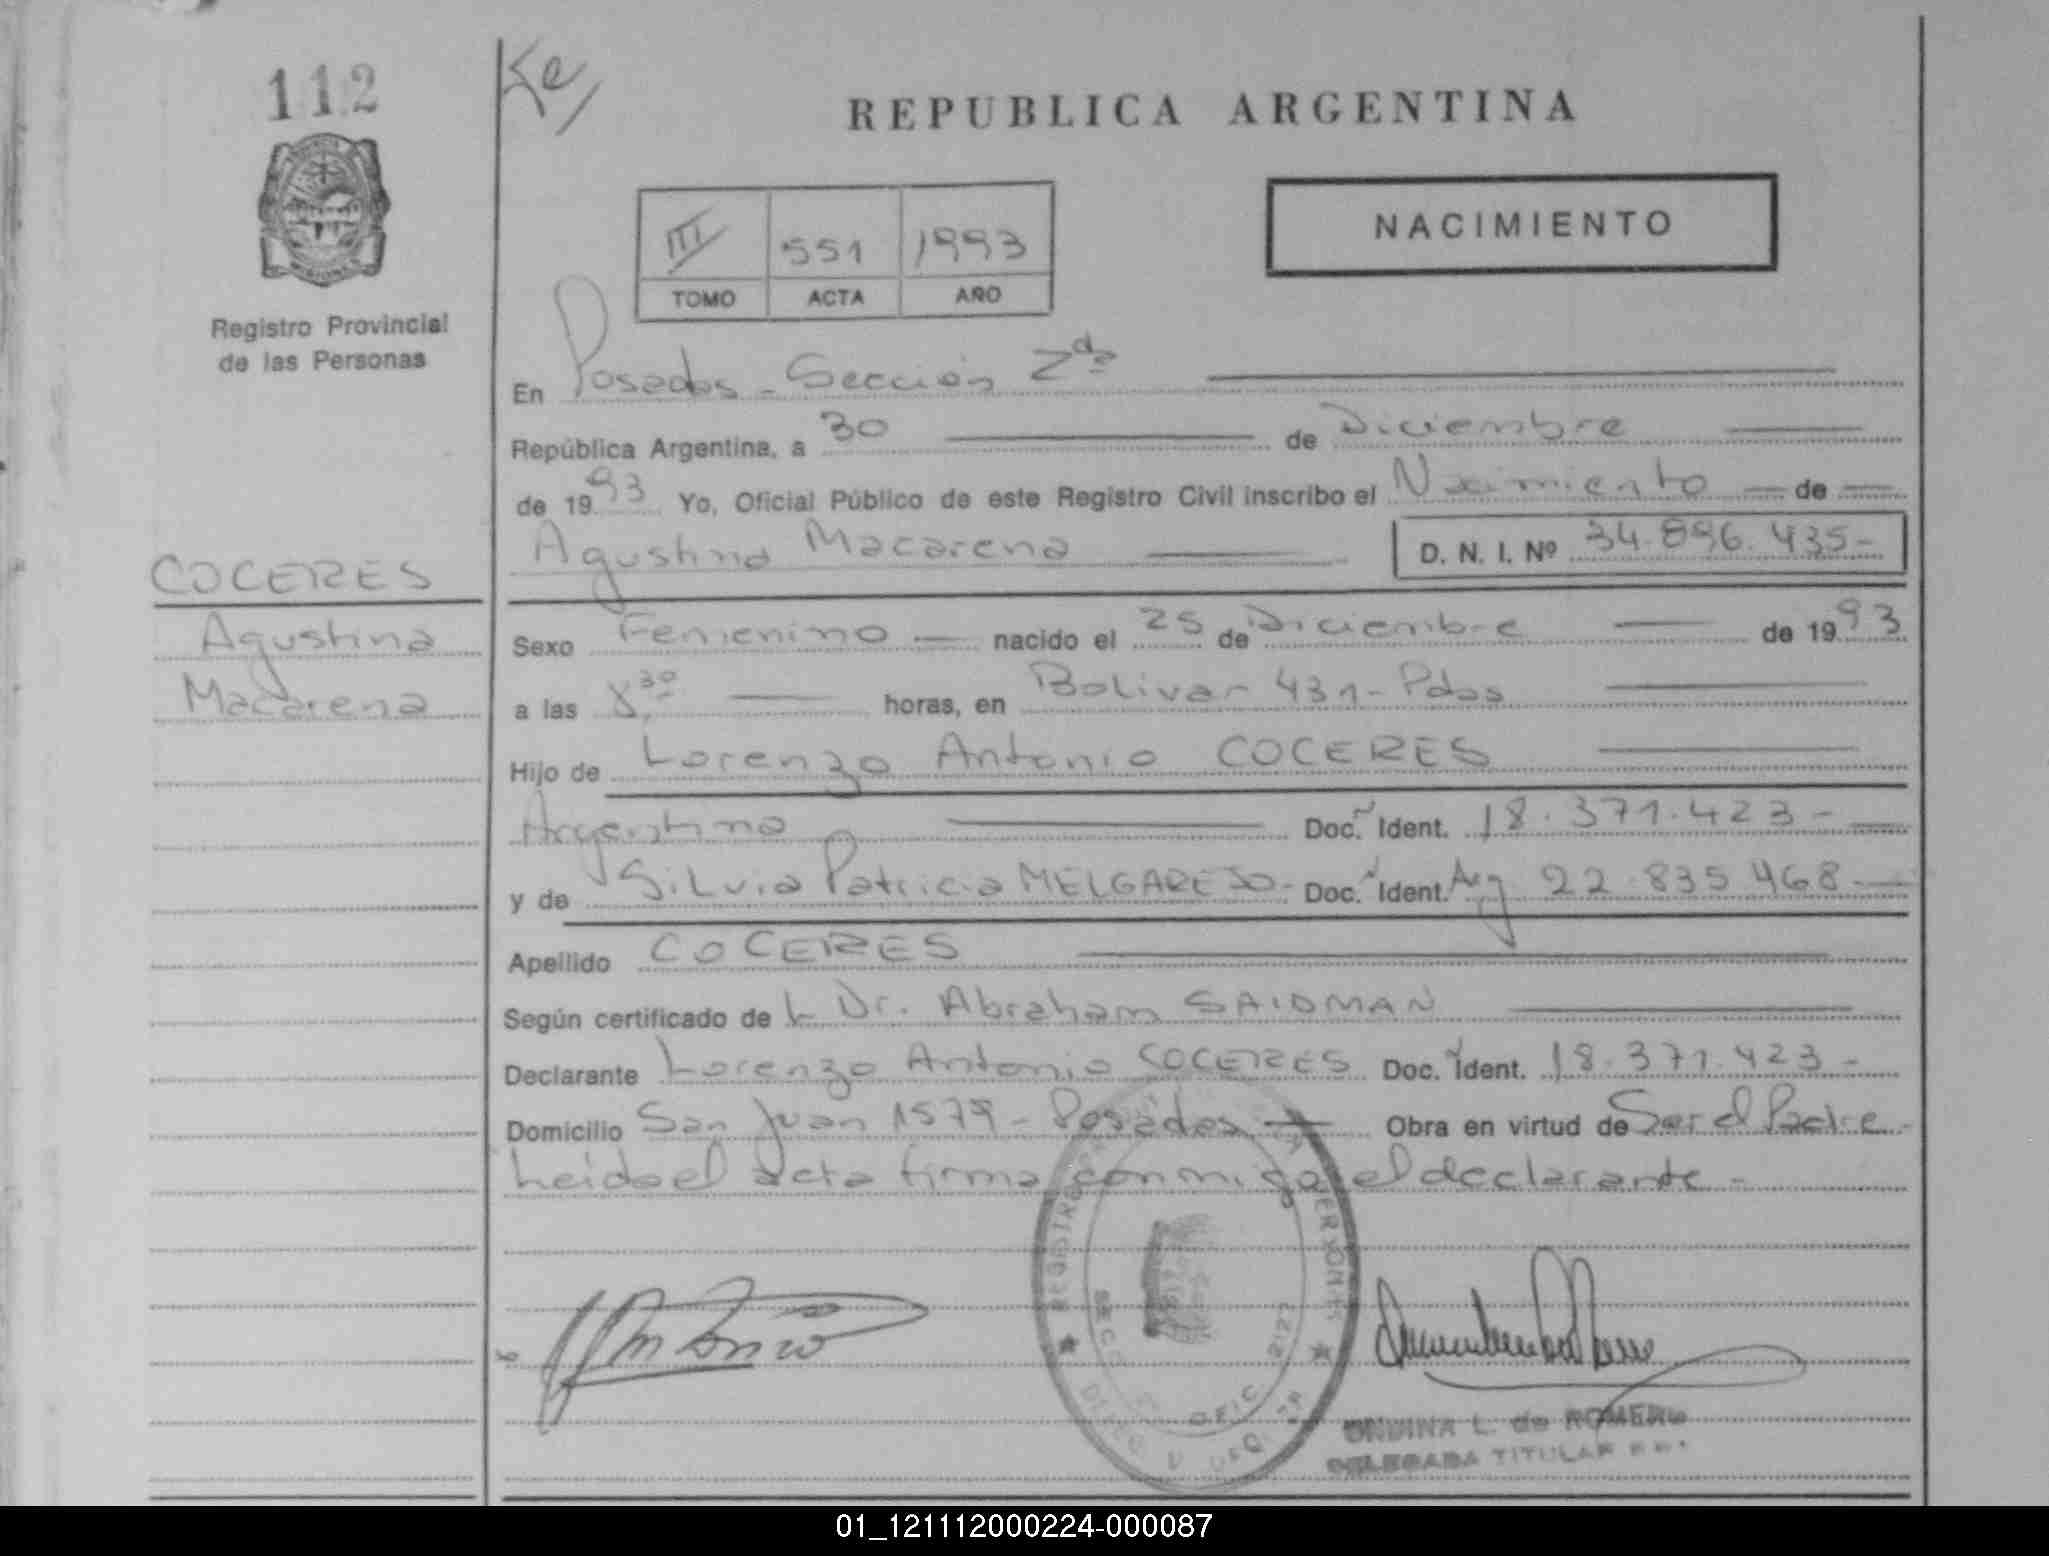 112
REPUBLICA ARGENTINA
NACIMIENTO
III 551 1993
TOMO ACTA AÑO
Registro Provincial
de las Personas
En Posadas - Sección 2da
República Argentina, a 30 de Diciembre
de 1993 Yo, Oficial Público de este Registro Civil inscribo el Nacimiento de
Agustina Macarena D. N. I. Nº 34.896.435-
COCERES
Agustina
Macarena
Sexo Femenino nacido el 25 de Diciembre de 1993
a las 8,30 horas, en Bolivar 431 - Pdas
Hijo de Lorenzo Antonio COCERES
Argentino Doc. Ident. 18.371.423-
y de Silvia Patricia MELGAREJO- Doc. Ident. Arg 22.835.468-
Apellido COCERES
Según certificado de Dr. Abraham SAIDMAN
Declarante Lorenzo Antonio COCERES Doc. Ident. 18.371.423-
Domicilio San Juan 1579 - Posadas Obra en virtud de Ser el Padre
Leida el acta firma conmigo el declarante -
REGISTRO PERSONAS
OFIC. 2127
L. de ROMERO
DELEGADA TITULAR
01_121112000224-000087